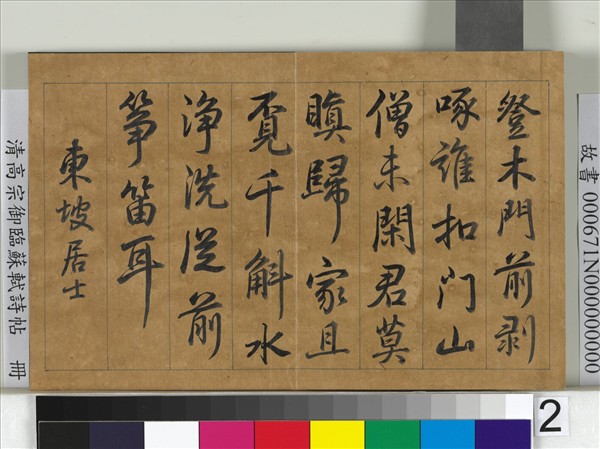 故書 000671N000000000
登木門前剥
啄誰扣门山
僧未閑君莫
瞋歸家且
覓千斛水
淨洗從前
箏笛耳
東坡居士
清高宗御臨蘇軾詩帖 冊
2